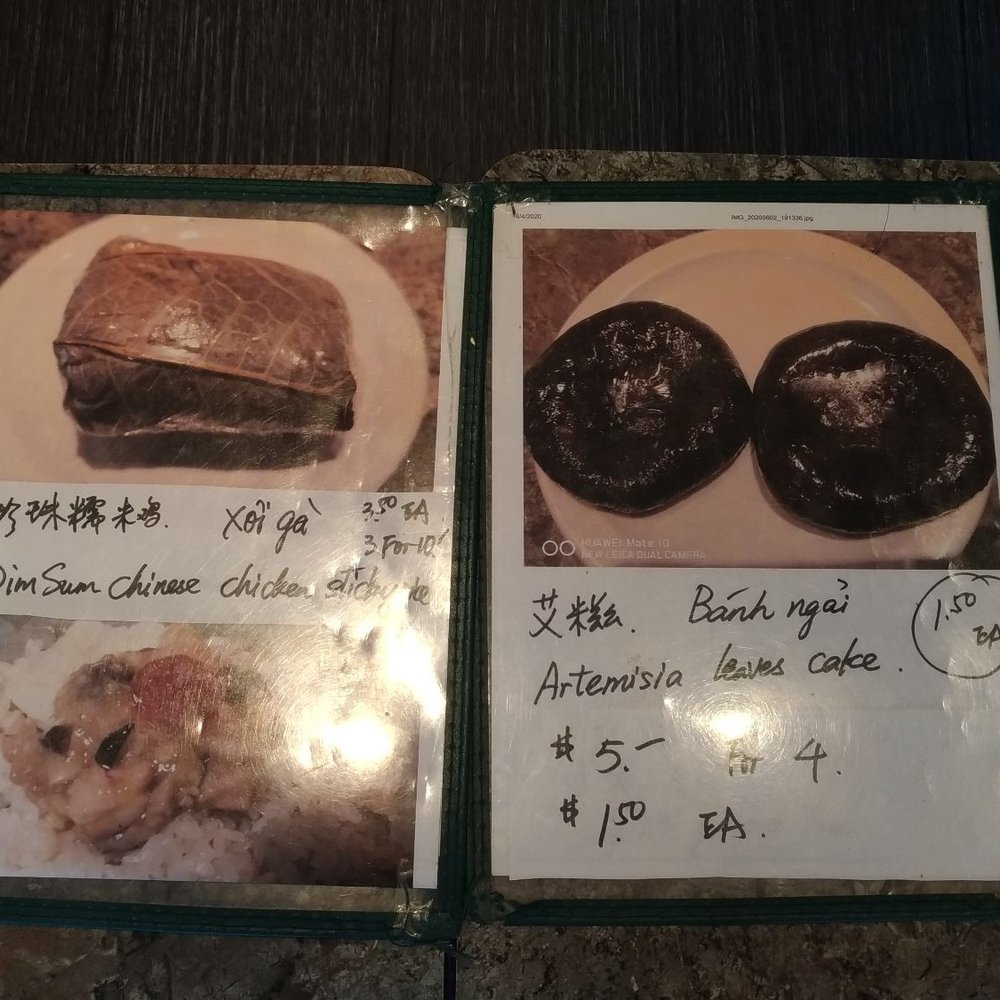 珍珠糯米鸡. Xôi gà 3.50 EA
3 For 10.
Dim Sum chinese chicken sticky
6/4/2020 IMG_20200602_191336.jpg
HUAWEI Mate 10
NEW LEICA DUAL CAMERA
艾糍. Bánh ngải 1.50 EA
Artemisia leaves cake.
$ 5.- For 4.
$ 1.50 EA.